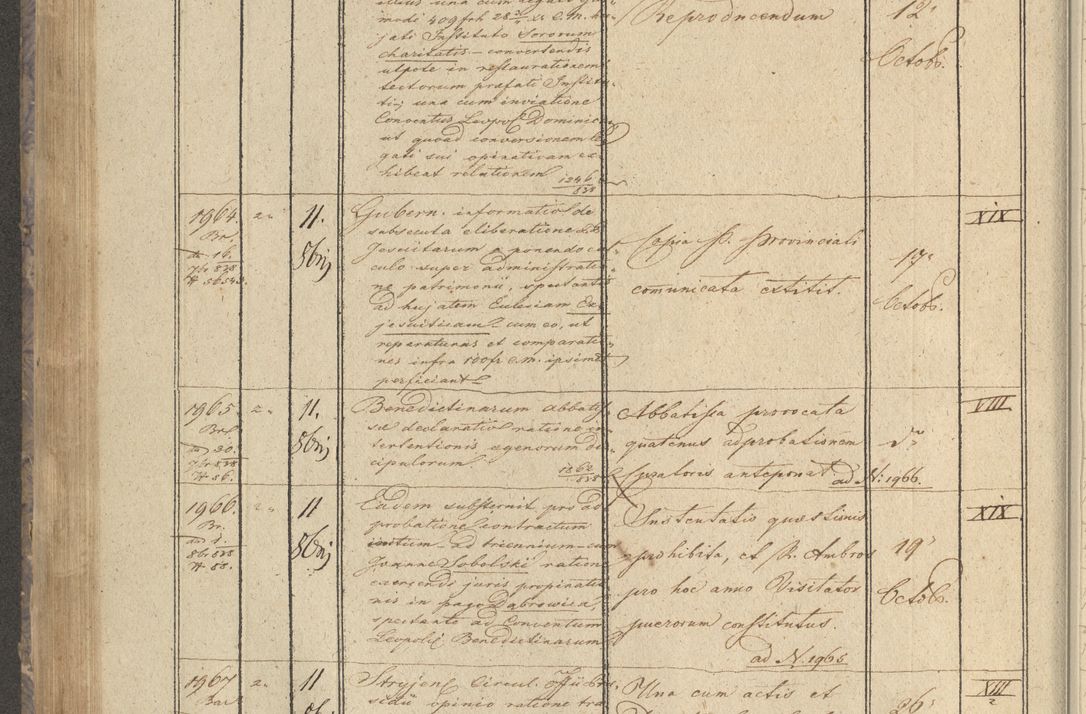 modi 409 frh
jati Instituto Sororum
charitatis – convertendis
utpote in restaurationem
tectorum praefati Institu-
ti, una cum inviatione
Conventus Leopol Dominica
ut quoad conversionem le-
gati sui opinativam ex-
hibeat relationem
1246
838
Reproducendum
12
Octob.
1964.
2.
11.
8bris
Br.
16.
7br 838
N 56543.
Gubern. informatio de
subsecuta eliberatione
Jesuitarum a ponendo cal-
culo super administratio-
ne patrimonii, spectantis
ad hujatem Ecclesiam Ex-
jesuiticam – cum eo, ut
reparaturas et comparatio-
nes infra 100 fr C.M. ipsimet
perficiant
Copia P. Provinciali
comunicata extitit.
17
Octob.
XIX
1965.
2.
11.
8bris
Br.
30.
7br 838
N 56.
Benedictinarum Abbatis-
sae declaratio ratione
tertentionis egenorum dis-
cipulorum
1862
838
Abbatissa provocata
quatenus adprobationem
Curatoris anteponat. ad N: 1966.
VIII
1966.
2.
11
8bris
Br.
8br 838
N 58.
Eadem substernit pro ad
probatione Contractum
initum – ad triennium – cum
Joanne Sobolski ratione
exercendi juris propinatio
nis in pago Dąbrowica,
spectante ad Conventum
Leopoli Benedictinarum
Sustentatio quaestionis
prohibita, et R. Ambros
pro hoc anno Visitator
puerorum constitutus.
ad N. 1965
19
Octob.
XIX
1967
2.
11
Stryjen Circul. Offii
sidii opinio ratione tra
Una cum actis et
26
XIII